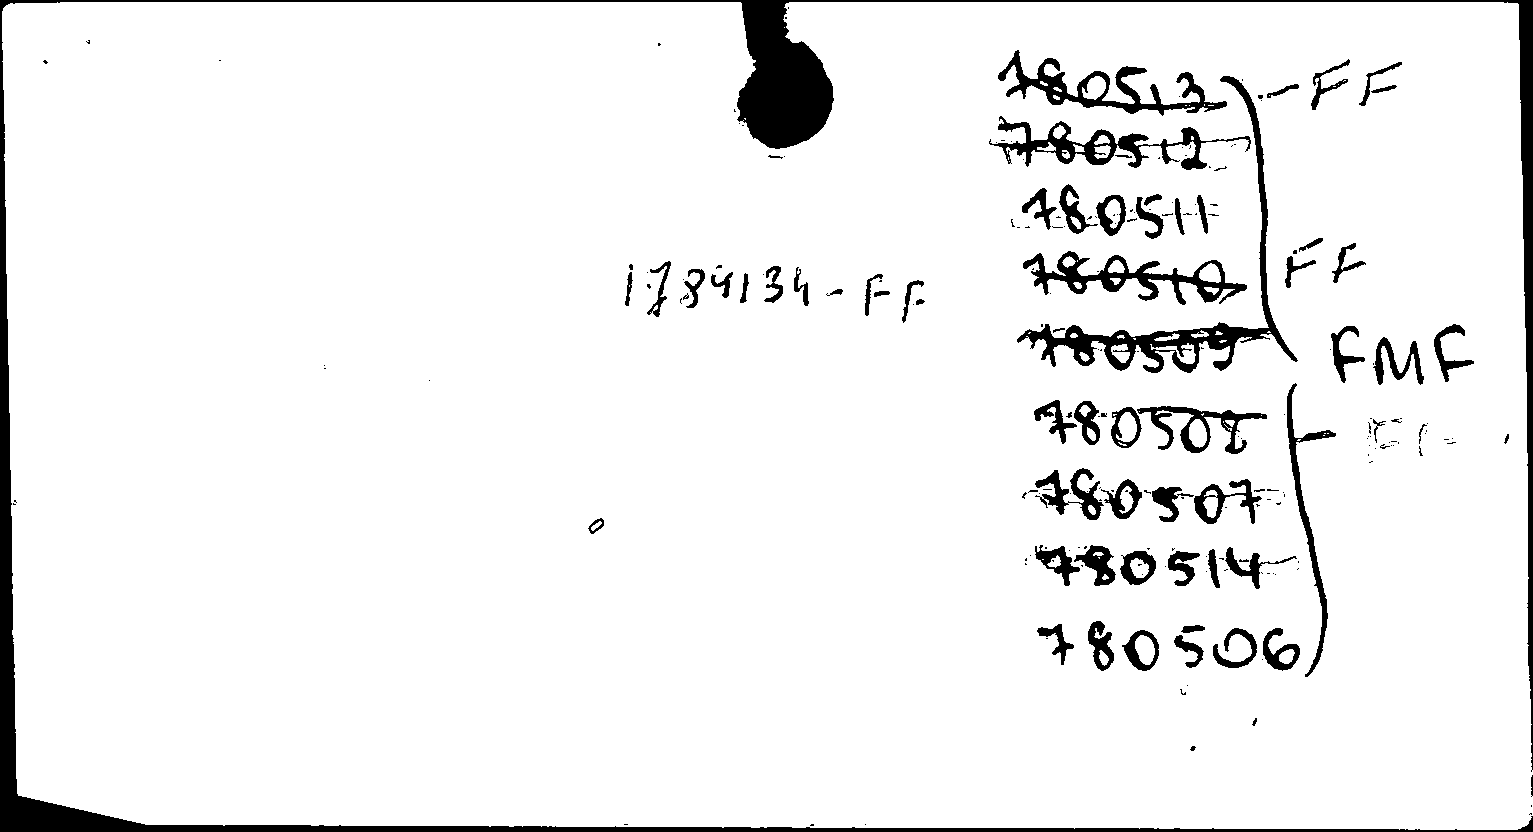 780513 - FF
780512
780511
780510 FF
1784134 - FF
780509 FMF
780508 -
780507
780514
780506